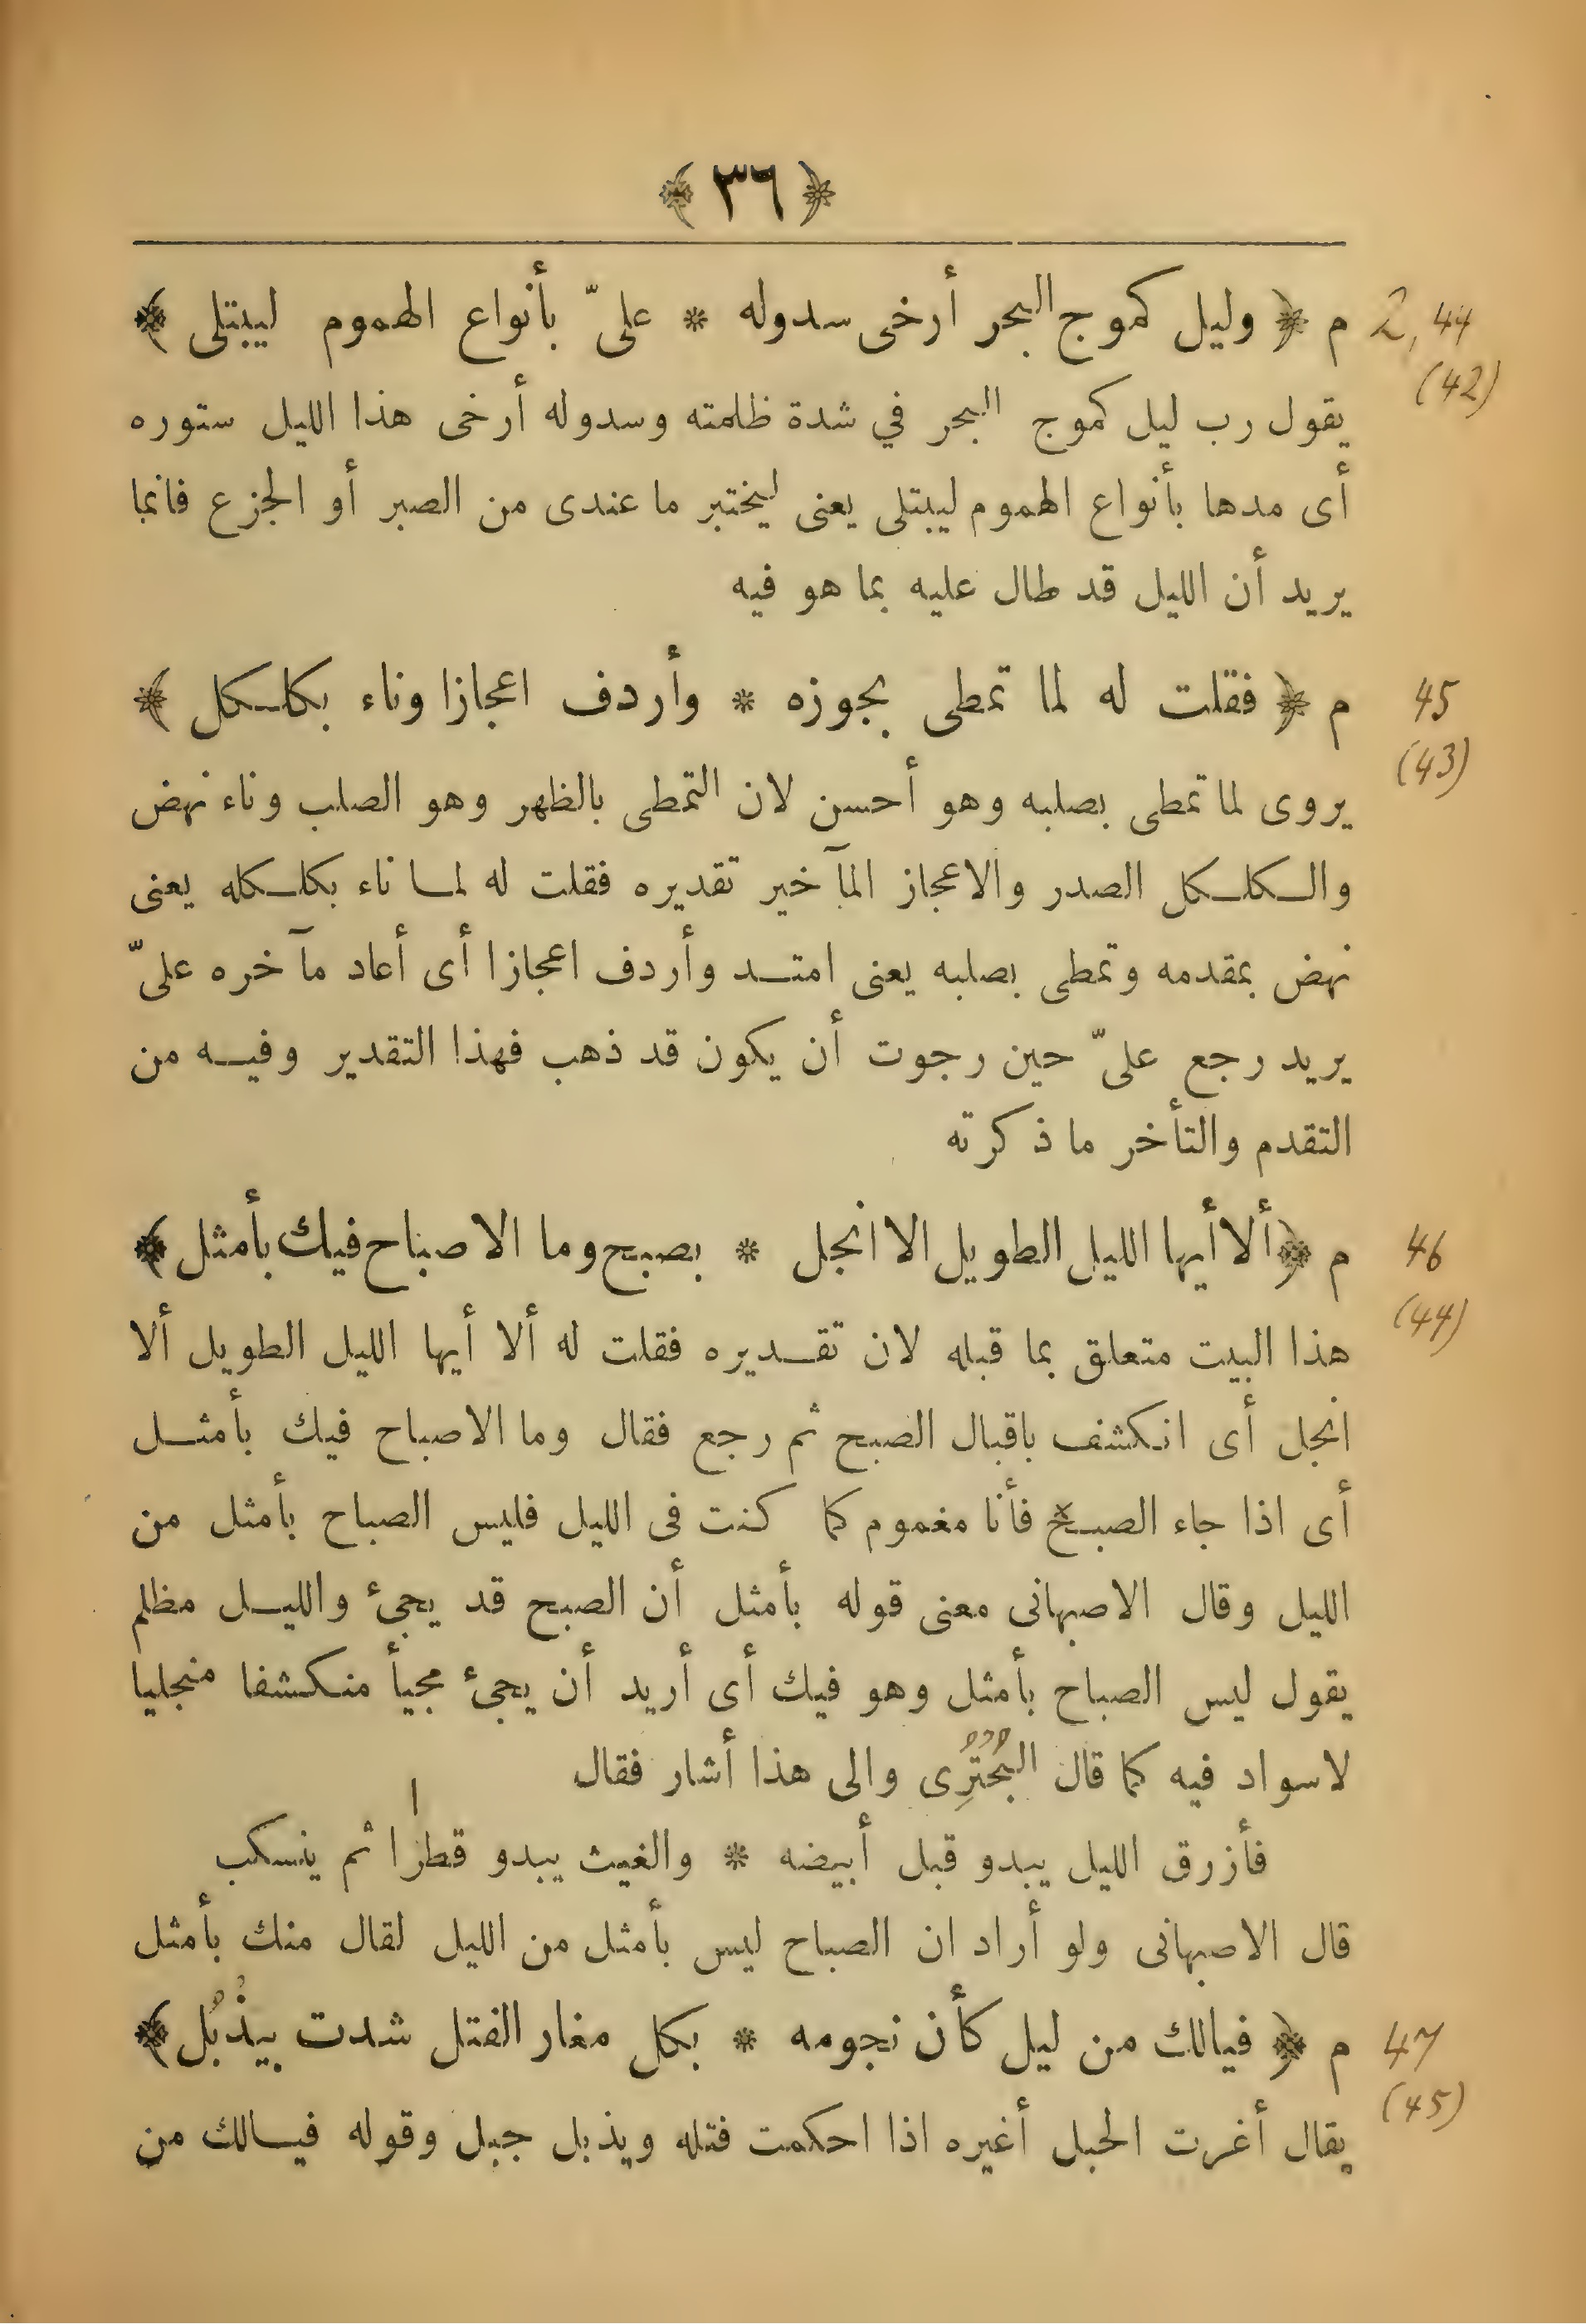 ﴿ ٣٦ ﴾
م ﴿ وليل كموج البحر أرخى سدوله * علىّ بأنواع الهموم ليبتلى ﴾ 2, 44
(42)
يقول رب ليل كموج البحر في شدة ظلمته وسدوله أرخى هذا الليل ستوره
أى مدها بأنواع الهموم ليبتلى يعنى ليختبر ما عندى من الصبر أو الجزع فانما
يريد أن الليل قد طال عليه بما هو فيه
م ﴿ فقلت له لما تمطى بجوزه * وأردف اعجازا وناء بكلكل ﴾ 45
(43)
يروى لما تمطى بصلبه وهو أحسن لان التمطى بالظهر وهو الصلب وناء نهض
والكلكل الصدر والاعجاز المآخير تقديره فقلت له لما ناء بكلكله يعنى
نهض بمقدمه وتمطى بصلبه يعنى امتد وأردف اعجازا أى أعاد مآخره علىّ
يريد رجع علىّ حين رجوت أن يكون قد ذهب فهذا التقدير وفيه من
التقدم والتأخر ما ذكرته
م ﴿ ألا أيها الليل الطويل الا انجل * بصبح وما الاصباح فيك بأمثل ﴾ 46
(44)
هذا البيت متعلق بما قبله لان تقديره فقلت له ألا أيها الليل الطويل ألا
انجل أى انكشف باقبال الصبح ثم رجع فقال وما الاصباح فيك بأمثل
أى اذا جاء الصبخ فأنا مغموم كما كنت فى الليل فليس الصباح بأمثل من
الليل وقال الاصبهانى معنى قوله بأمثل أن الصبح قد يجئ والليل مظلم
يقول ليس الصباح بأمثل وهو فيك أى أريد أن يجئ مجيأ منكشفا منجليا
لاسواد فيه كما قال البُحْتُرِى والى هذا أشار فقال
فأزرق الليل يبدو قبل أبيضه * والغيث يبدو قطرا ثم ينسكب
قال الاصبهانى ولو أراد ان الصباح ليس بأمثل من الليل لقال منك بأمثل
م ﴿ فيالك من ليل كأن نجومه * بكل مغار الفتل شدت بيذْبُل ﴾ 47
(45)
يقال أغرت الحبل أغيره اذا احكمت فتله ويذبل جبل وقوله فيالك من